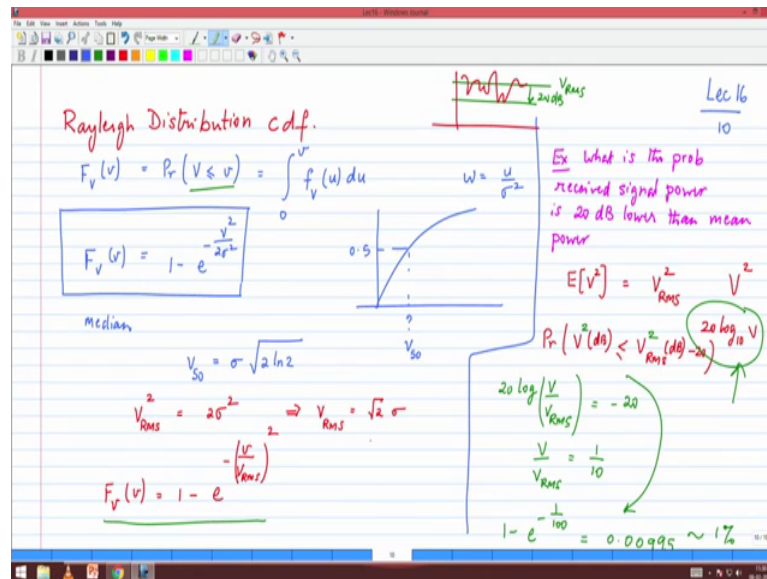 Lec16 - Windows Journal
File Edit View Insert Actions Tools Help
Page Width
Lec 16
10
V_RMS
20dB
Rayleigh Distribution cdf.
F_V(v) = Pr(V ≤ v) = ∫_0^v f_V(u) du
w = u/σ²
F_V(v) = 1 - e^{-v²/2σ²}
0.5
?
V_50
median
V_50 = σ √(2 ln 2)
V²_RMS = 2σ² ⇒ V_RMS = √2 σ
F_V(v) = 1 - e^{-(v/V_RMS)²}
Ex What is the prob
received signal power
is 20 dB lower than mean
power
E[V²] = V²_RMS V²
Pr(V²(dB) ≤ V²_RMS(dB) - 20) 20 log_10 V
20 log(V/V_RMS) = -20
V/V_RMS = 1/10
1 - e^{-1/100} = 0.00995 ~ 1%
10